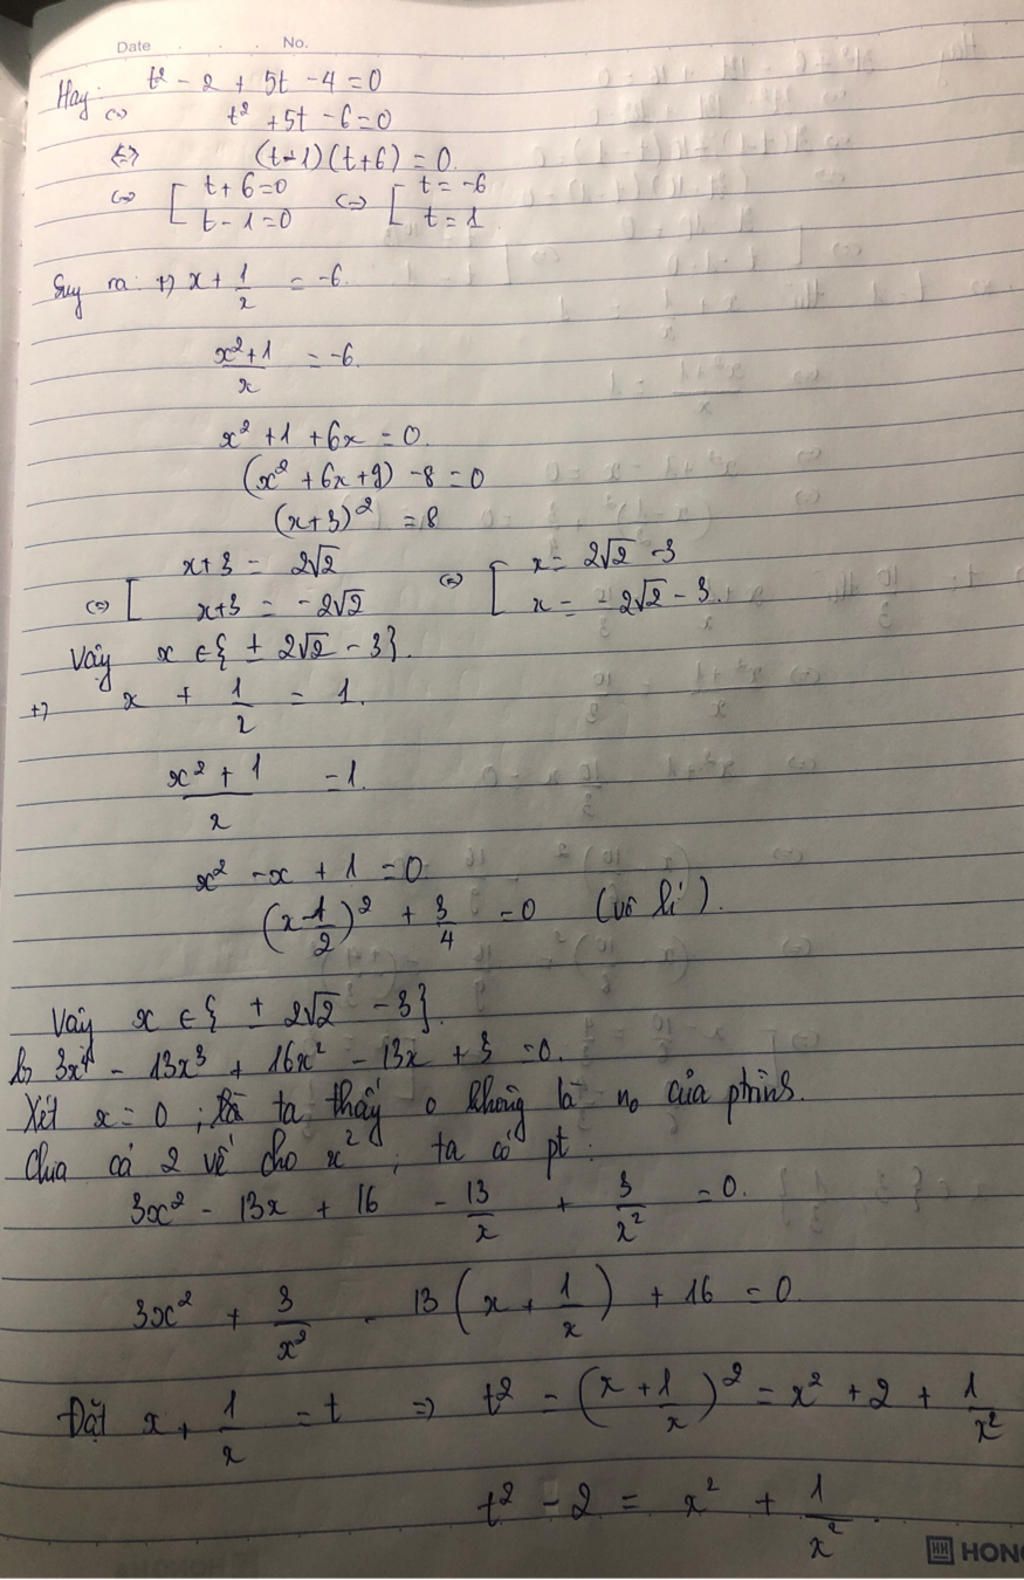 Date No.
Hay: t² - 2 + 5t - 4 = 0
⇔ t² + 5t - 6 = 0
⇔ (t-1)(t+6) = 0.
⇔ [ t+6=0 ⇔ [ t = -6
t-1=0 t = 1
Suy ra: +) x + 1/x = -6.
(x²+1)/x = -6.
x² + 1 + 6x = 0.
(x² + 6x + 9) - 8 = 0
(x+3)² = 8
⇔ [ x+3 = 2√2 ⇔ [ x = 2√2 - 3
x+3 = -2√2 x = -2√2 - 3.
Vậy x ∈ { ± 2√2 - 3}.
+) x + 1/x = 1.
(x² + 1)/x = 1.
x² - x + 1 = 0.
(x - 1/2)² + 3/4 = 0 (vô lí).
Vậy x ∈ { ± 2√2 - 3}.
b, 3x⁴ - 13x³ + 16x² - 13x + 3 = 0.
Xét x = 0; ta thấy 0 không là n₀ của ptrình.
Chia cả 2 vế cho x², ta có pt:
3x² - 13x + 16 - 13/x + 3/x² = 0.
3x² + 3/x² - 13(x + 1/x) + 16 = 0.
Đặt x + 1/x = t ⇒ t² = (x + 1/x)² = x² + 2 + 1/x²
t² - 2 = x² + 1/x².
HONG